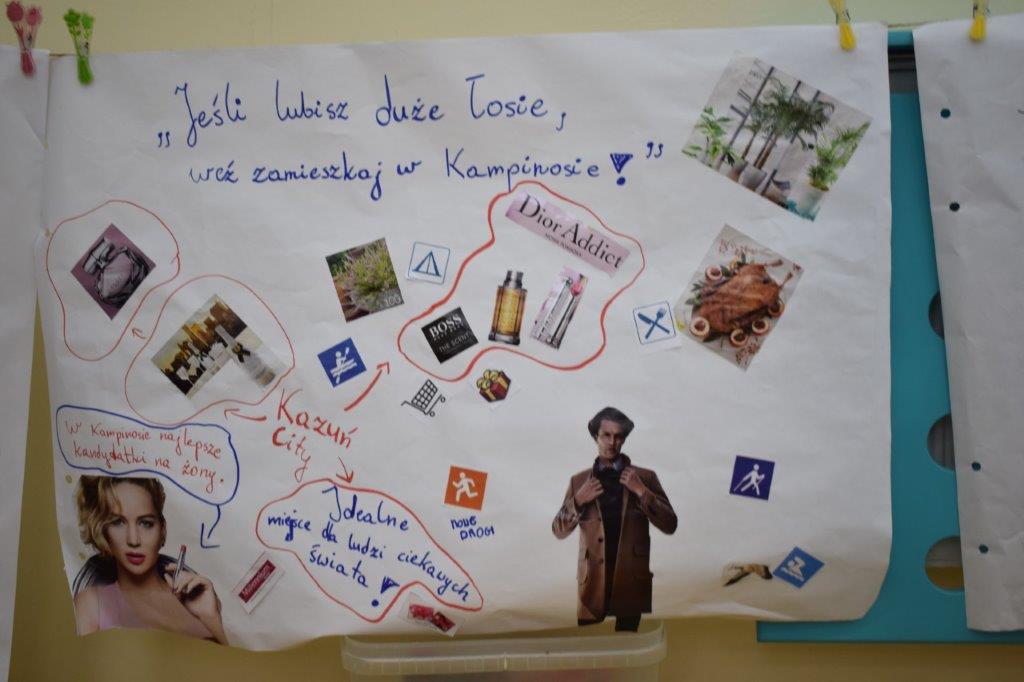 „Jeśli lubisz duże Łosie,
weź zamieszkaj w Kampinosie!”
Dior Addict
BOSS
THE SCENT
£300
Kazuń
City
W Kampinosie najlepsze
kandydatki na żony.
Idealne
miejsce dla ludzi ciekawych
świata!
nowe
DROGI